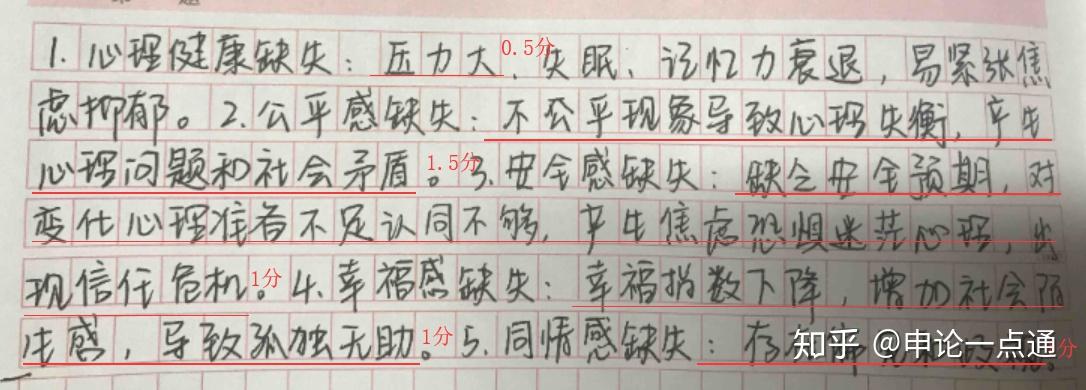 1.心理健康缺失：压力大、失眠、记忆力衰退，易紧张焦
0.5分
虑抑郁。2.公平感缺失：不公平现象导致心理失衡，产生
心理问题和社会矛盾。3.安全感缺失：缺乏安全预期，对
1.5分
变化心理准备不足认同不够，产生焦虑恐惧迷茫心理，出
现信任危机。4.幸福感缺失：幸福指数下降，增加社会陌
1分
生感，导致孤独无助。5.同情感缺失：存
1分
知乎 @申论一点通
分